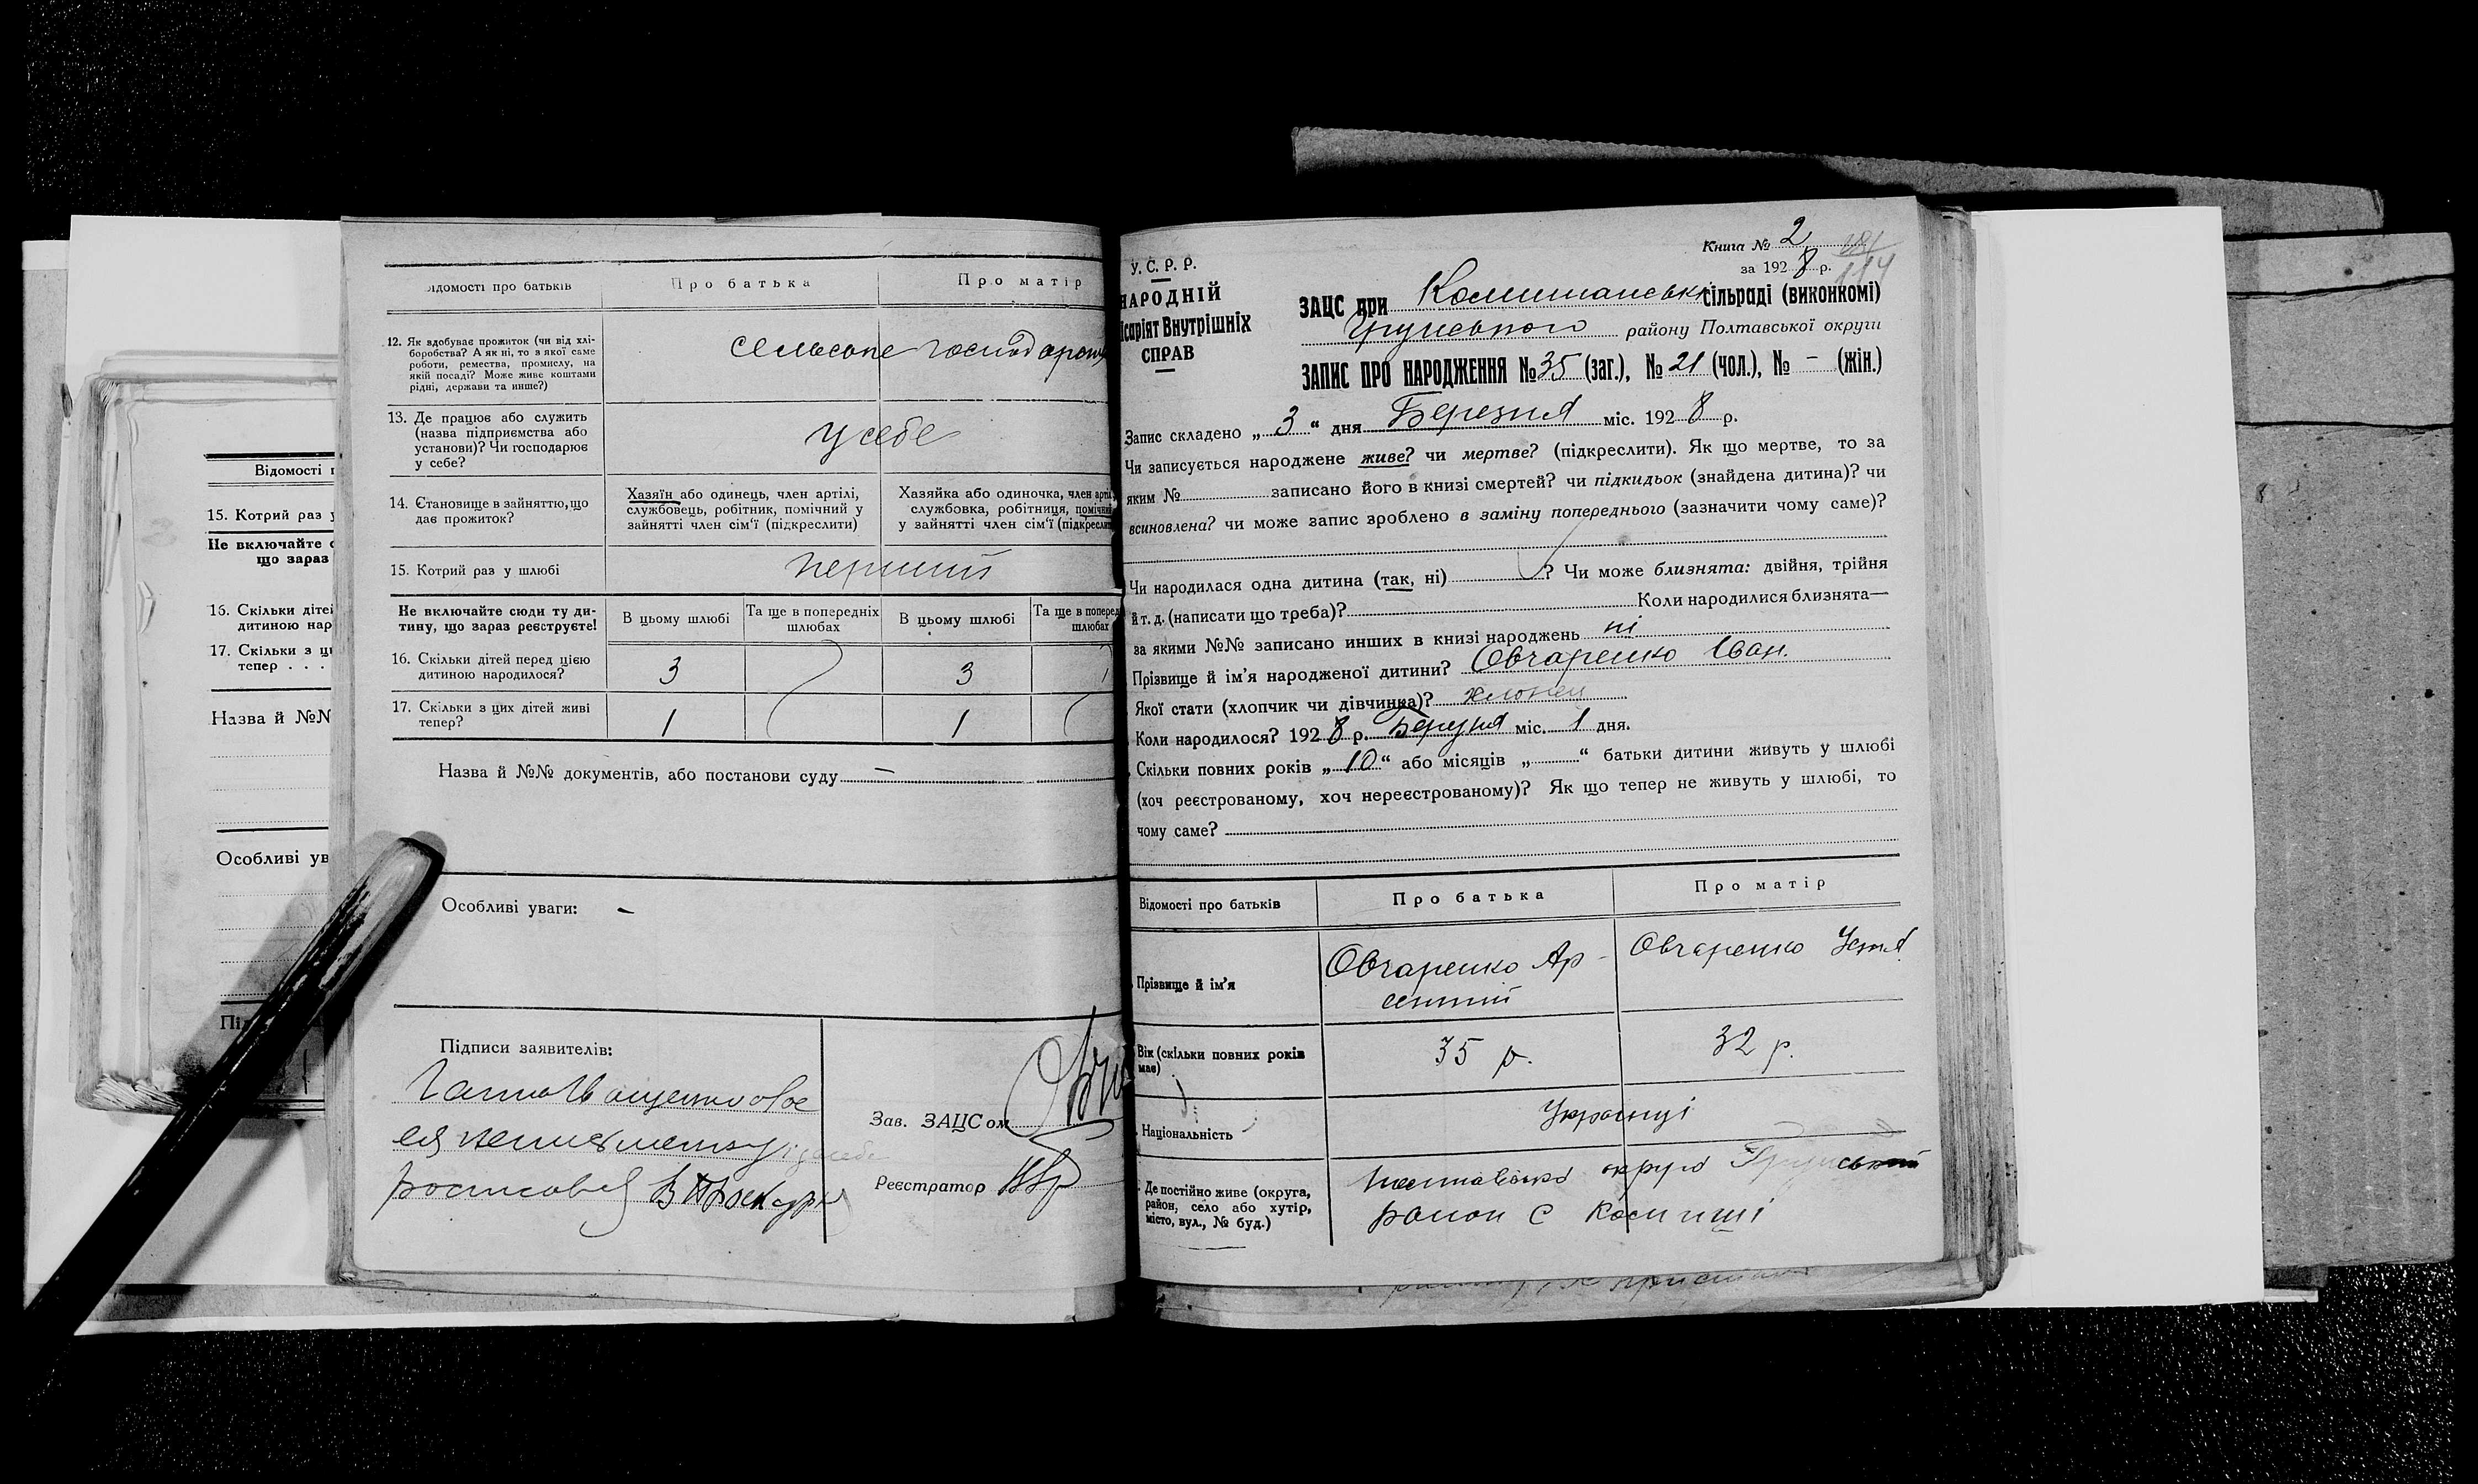 Відомості
15. Котрий раз у
Не включайте
що зараз
16. Скільки дітей
дитиною нар
17. Скільки з ц
тепер . . .
Назва й №№
Особливі ув
Підп
ідомості про батьків
Про батька
Про матір
12. Як здобуває прожиток (чи від хлі-
боробства? А як ні, то з якої саме
роботи, ремества, промислу, на
якій посаді? Може живе коштами
рідні, держави та инше?)
сельське господарств
13. Де працює або служить
(назва підприємства або
установи)? Чи господарює
у себе?
у себе
14. Становище в зайняттю, що
дає прожиток?
Хазяїн або одинець, член артілі,
службовець, робітник, помічний у
зайнятті член сім'ї (підкреслити)
Хазяйка або одиночка, член арті
службовка, робітниця, помічний
у зайнятті член сім'ї (підкреслити
15. Котрий раз у шлюбі
перший
Не включайте сюди ту ди-
тину, що зараз реєструєте!
В цьому шлюбі
Та ще в попередніх
шлюбах
В цьому шлюбі
Та ще в поперед
шлюбах
16. Скільки дітей перед цією
дитиною народилося?
3
3
17. Скільки з цих дітей живі
тепер?
1
1
Назва й №№ документів, або постанови суду —
Особливі уваги: —
Підписи заявителів:
Зав. ЗАЦСом
Реєстратор
Книга № 2
за 1928 р.
114
У. С. Р. Р.
НАРОДНІЙ
ісаріят Внутрішніх
СПРАВ
ЗАЦС при Комишанські сільраді (виконкомі)
Грунського району Полтавської округи
ЗАПИС ПРО НАРОДЖЕННЯ № 35 (заг.), № 21 (чол.), № – (жін.)
Запис складено „ 3 “ дня Березня міс. 1928 р.
Чи записується народжене живе? чи мертве? (підкреслити). Як що мертве, то за
яким № записано його в книзі смертей? чи підкидьок (знайдена дитина)? чи
всиновлена? чи може запис зроблено в заміну попереднього (зазначити чому саме)?
Чи народилася одна дитина (так, ні) ? Чи може близнята: двійня, трійня
й т. д. (написати що треба)? Коли народилися близнята—
за якими №№ записано инших в книзі народжень ні
Прізвище й ім'я народженої дитини? Овчаренко Іван.
Якої стати (хлопчик чи дівчинка)? хлопец
Коли народилося? 1928 р. Березня міс. 1 дня.
Скільки повних років „ 10 “ або місяців „ “ батьки дитини живуть у шлюбі
(хоч реєстрованому, хоч нереєстрованому)? Як що тепер не живуть у шлюбі, то
чому саме?
Відомості про батьків
Про батька
Про матір
Прізвище й ім'я
Овчаренко Ар-
сентий
Овчаренко Устя
Вік (скільки повних років
має)
35 р.
32 р.
Національність
Українці
Де постійно живе (округа,
район, село або хутір,
місто, вул., № буд.)
Полтавська округа Грунський
район с Комиши